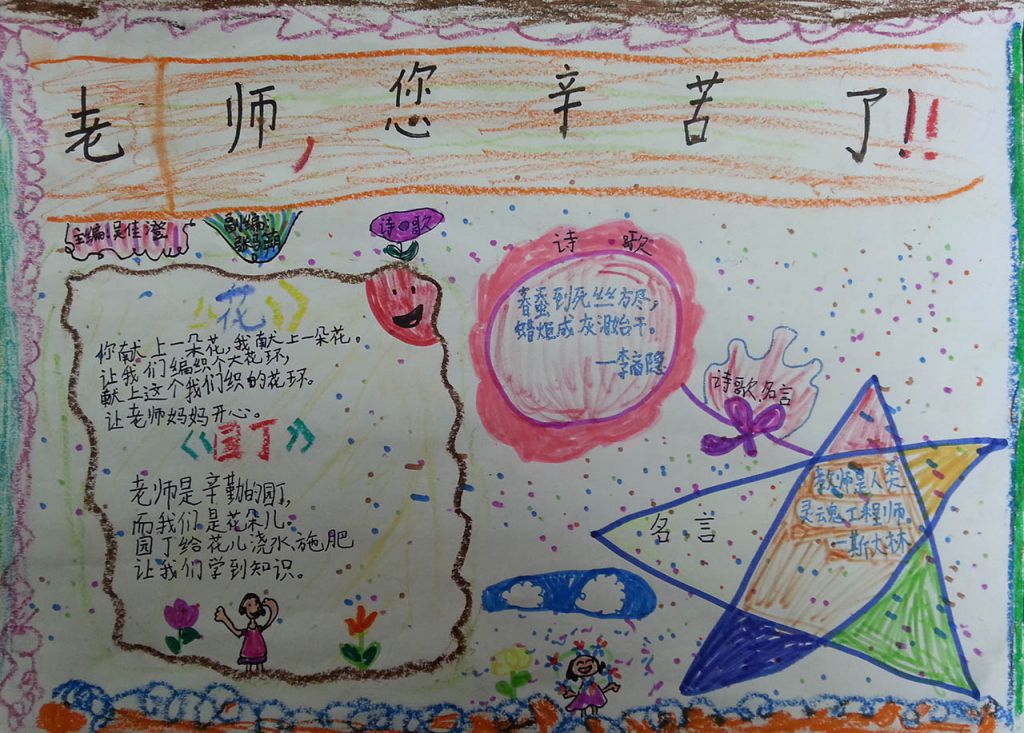 老师,您辛苦了!!
主编:吴佳澄
副编:
诗歌
《花》
你献上一朵花,我献上一朵花。
让我们编织个大花环,
献上这个我们织的花环。
让老师妈妈开心。
《园丁》
老师是辛勤的园丁,
而我们是花朵儿。
园丁给花儿浇水、施肥
让我们学到知识。
诗歌
春蚕到死丝方尽,
蜡炬成灰泪始干。
—李商隐
诗歌.名言
名言
教师是人类
灵魂工程师。
—斯大林